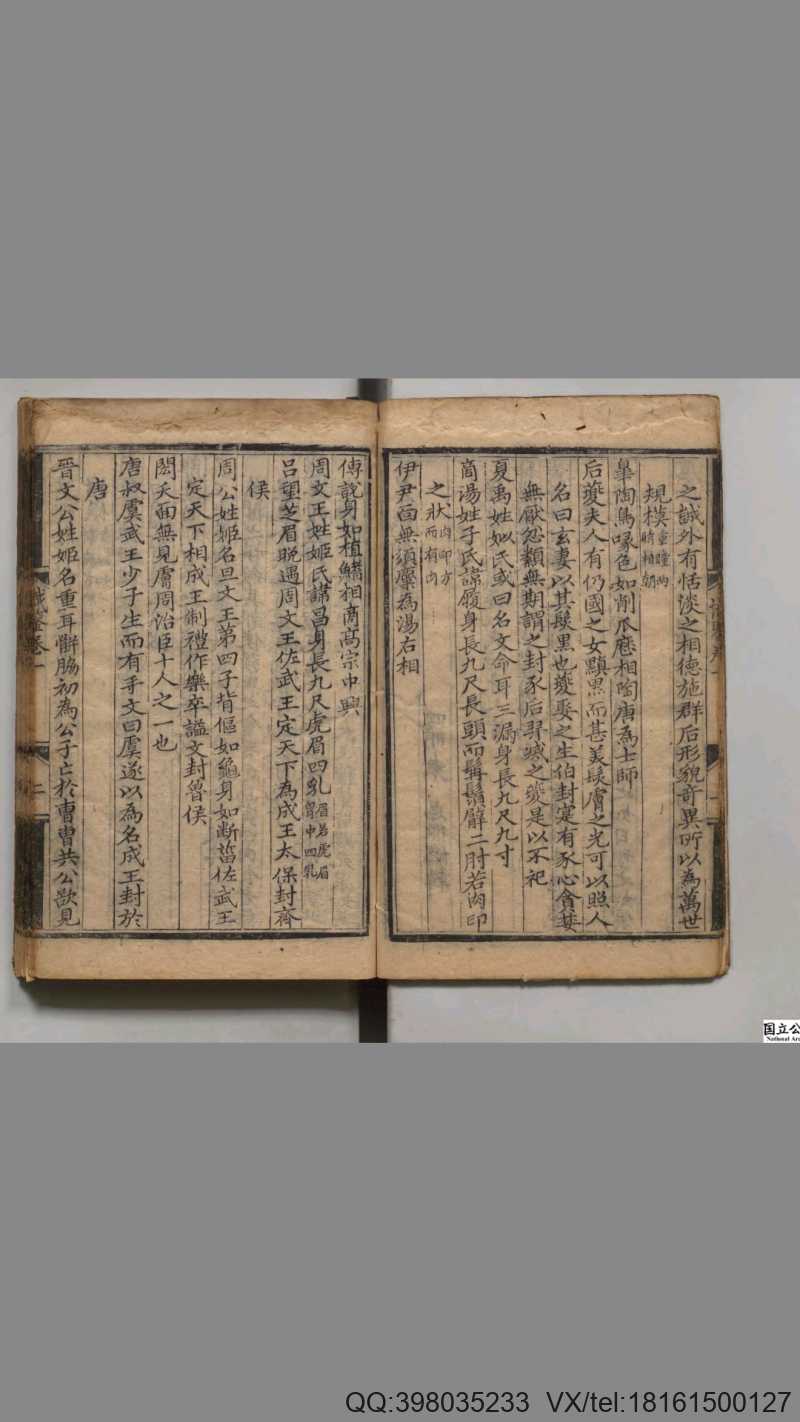 之誠外有恬淡之相德施群后形貌奇異所以為萬世
規模重瞳兩
時相朝
皋陶鳥喙色如削瓜庭相陶唐為士師
后夔夫人有仍國之女黰黑而甚美髮膚之光可以照人
名曰玄妻以其髮黑也夔娶之生伯封寔有豕心貪婪
無厭忿纇無期謂之封豕后羿滅之夔是以不祀
夏禹姓姒氏或曰名文命耳三漏身長九尺九寸
商湯姓子氏諱履身長九尺長頭而髯鬚臂二肘若肉印
之狀肉印方
而有肉
伊尹面無須麋為湯右相
傅說身如植鰭相商高宗中興
周文王姓姬氏諱昌身長九尺虎眉四乳眉若虎眉
胷中四乳
呂望芝眉晚遇周文王佐武王定天下為成王太保封齊
侯
周公姓姬名旦文王第四子背傴如龜身如斷菑佐武王
定天下相成王制禮作樂卒謚文封魯侯
閎夭面無見膚周治臣十人之一也
唐叔虞武王少子生而有手文曰虞遂以為名成王封於
唐
晉文公姓姬名重耳骿脇初為公子亡於曹曹共公欲見
鑒卷一
二
国立公
National Arc
QQ:398035233 VX/tel:18161500127